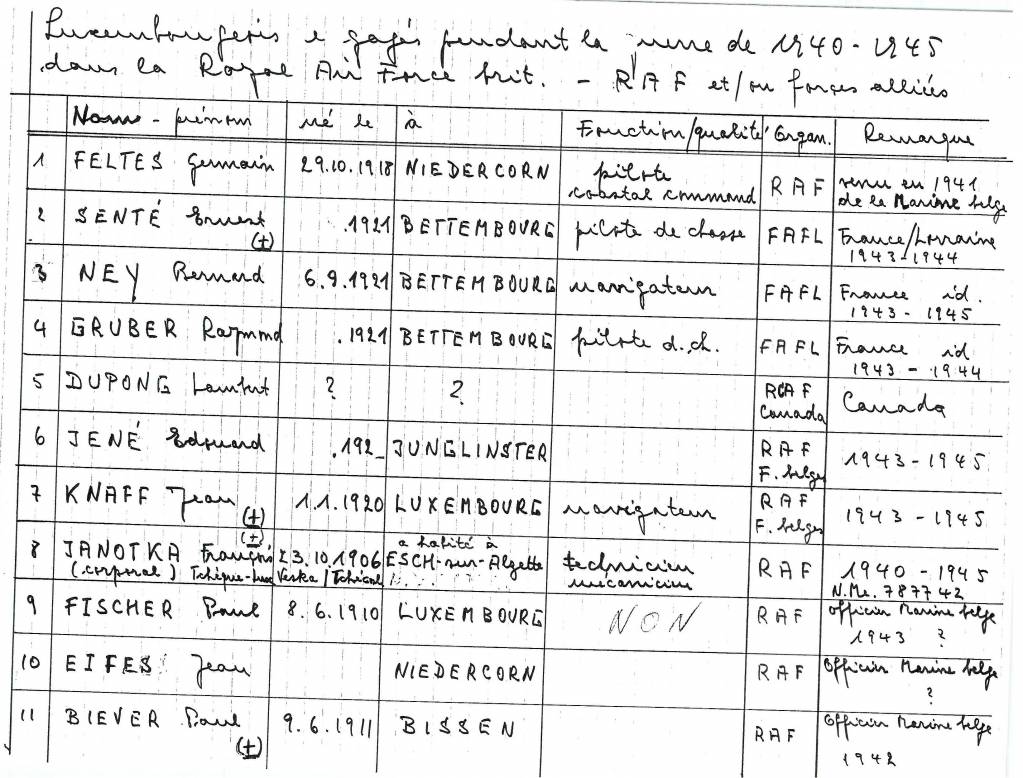 Luxembourgeois e gagés pendant la uerre de 1940-1945
dans la Royal Air Force brit. - RAF et/ou forces alliées
Nom - prénom né le à Fonction/qualité Organ. Remarque
1 FELTES Germain 29.10.1918 NIEDERCORN pilote RAF venu en 1941
coastal command de la Marine belge
2 SENTÉ Ernest .1921 BETTEMBOURG pilote de chasse FAFL France/Lorraine
(+) 1943-1944
3 NEY Bernard 6.9.1921 BETTEMBOURG navigateur FAFL France id.
1943-1945
4 GRUBER Raymond .1921 BETTEMBOURG pilote d. ch. FAFL France id
1943-1944
5 DUPONG Lambert ? ? RCAF Canada
Canada
6 JENÉ Edouard .192_ JUNGLINSTER RAF 1943-1945
F. belges
7 KNAFF Jean 1.1.1920 LUXEMBOURG navigateur RAF 1943-1945
(+) F. belges
(+) a habité à
8 JANOTKA François 23.10.1906 ESCH-sur-Alzette technicien RAF 1940-1945
(corporal) Tchèque-Lux Veska/ mécanicien N.Me. 787742
9 FISCHER Paul 8.6.1910 LUXEMBOURG NON RAF Officier Marine belge
1943 ?
10 EIFES Jean NIEDERCORN RAF Officier Marine belge
?
11 BIEVER Paul 9.6.1911 BISSEN RAF Officier Marine belge
(+) 1942